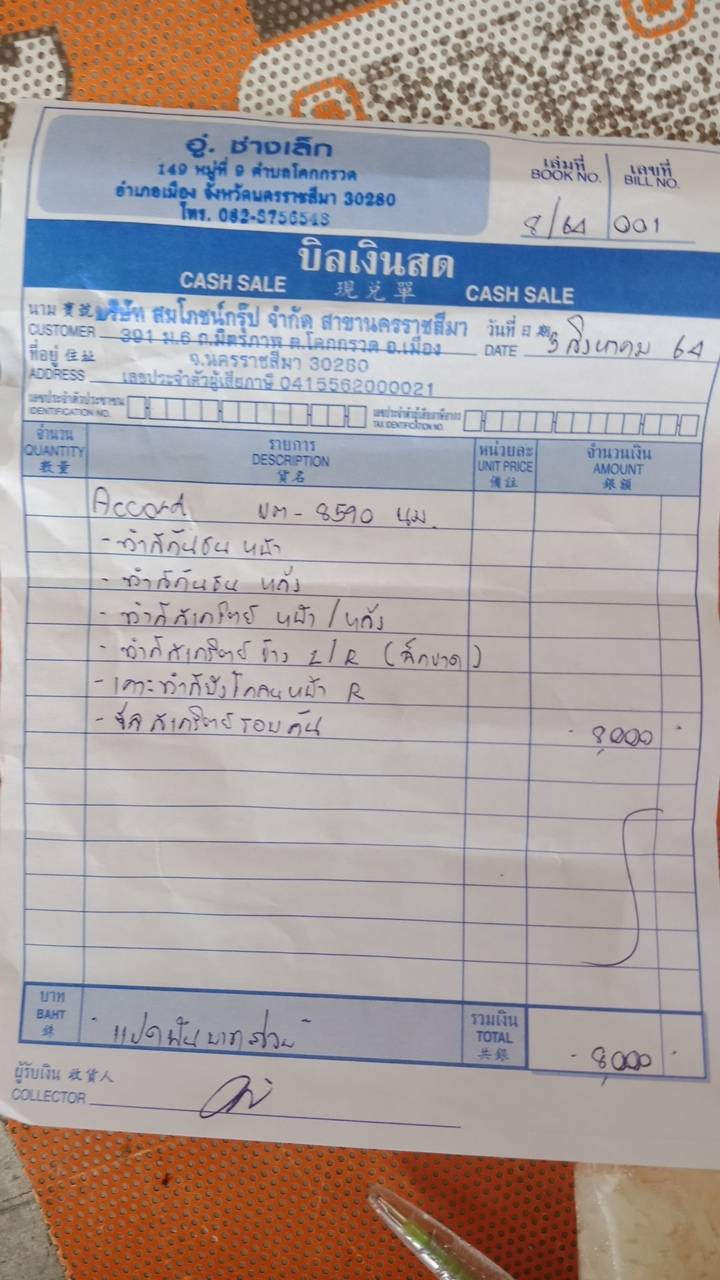 อู่. ช่างเล็ก
149 หมู่ที่ 9 ตำบลโคกกรวด
อำเภอเมือง จังหวัดนครราชสีมา 30280
โทร. 082-8756548
เล่มที่ เลขที่
BOOK NO. BILL NO.
8/64 001
บิลเงินสด
CASH SALE 現兌單 CASH SALE
นาม 寶號 บริษัท สมโภชน์กรุ๊ป จำกัด สาขานครราชสีมา วันที่ 日期
CUSTOMER 391 ม.6 ถ.มิตรภาพ ต.โคกกรวด อ.เมือง DATE 5 สิงหาคม 64
ที่อยู่ 住址 จ.นครราชสีมา 30280
ADDRESS เลขประจำตัวผู้เสียภาษี 0415562000021
เลขประจำตัวประชาชน เลขประจำตัวผู้เสียภาษีอากร
IDENTIFICATION NO. TAX IDENTIFICATION NO.
จำนวน รายการ หน่วยละ จำนวนเงิน
QUANTITY DESCRIPTION UNIT PRICE AMOUNT
數量 貨名 備註 銀額
Accord ขต - 8590 นม.
- ทำสีกันชน หน้า
- ทำสีกันชน หลัง
- ทำสีสเกิร์ตย์ หน้า / หลัง
- ทำสีสเกิร์ตย์ ข้าง L/R (ฉีกขาด)
- เคาะทำสีบังโคลนหน้า R
- สเกิร์ตย์รอบคัน 8,000
บาท รวมเงิน
BAHT "แปดพันบาทถ้วน" TOTAL 8,000
銖 共銀
ผู้รับเงิน 收貨人
COLLECTOR